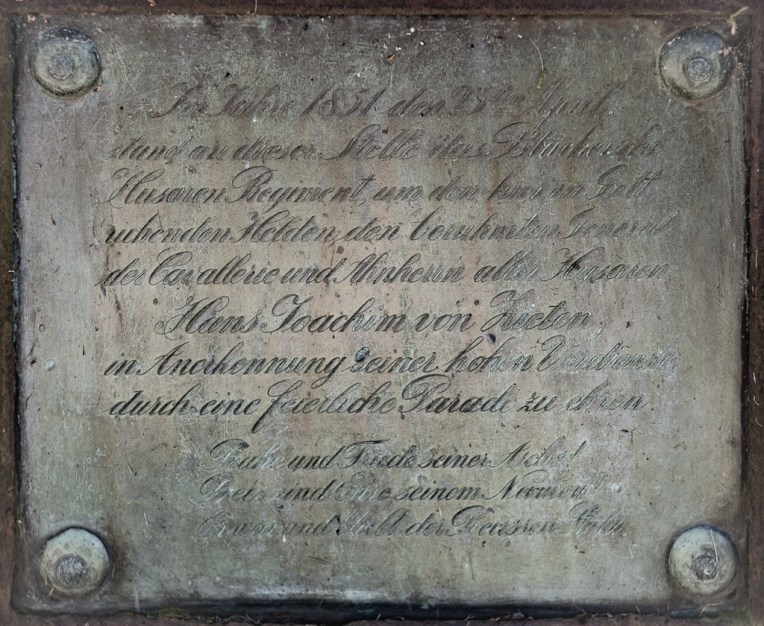 Im Jahre 1851 den 28ten April
stand an dieser Stätte das Blüchersche
Husaren Regiment, um den hier in Gott
ruhenden Helden, den berühmten General
der Cavallerie und Ahnherrn aller Husaren
Hans Joachim von Zieten,
in Anerkennung seiner hohen Verdienste,
durch eine feierliche Parade zu ehren.
Ruhe und Friede seiner Asche!
Preis und Ehre seinem Namen!
und der Preussen